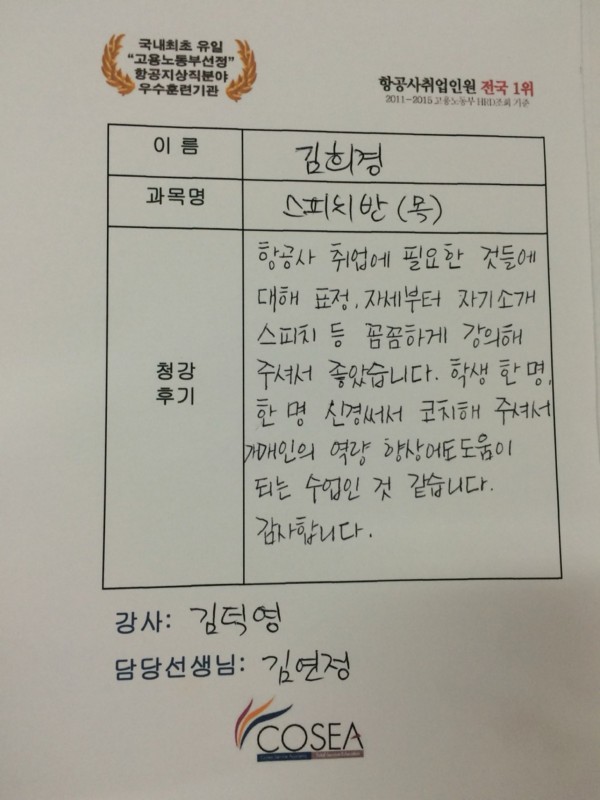 국내최초 유일
"고용노동부선정"
항공지상직분야
우수훈련기관
항공사취업인원 전국 1위
2011~2015 고용노동부 HRD조회 기준
이 름
김희경
과목명
스피치반 (목)
청강
후기
항공사 취업에 필요한 것들에
대해 표정, 자세부터 자기소개
스피치 등 꼼꼼하게 강의해
주셔서 좋았습니다. 학생 한 명,
한 명 신경써서 코치해 주셔서
개개인의 역량 향상에도 도움이
되는 수업인 것 같습니다.
감사합니다.
강사: 김덕영
담당선생님: 김연정
COSEA